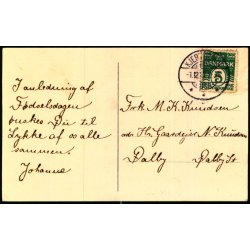 I anledning af
Fødselsdagen
ønskes Du til
Lykke af os alle
sammen.
Johanne
DANMARK
5
Frk M. K. Knudsen
adr. Hr. Gaardejer N. Knudsen
Dalby Dalby St.